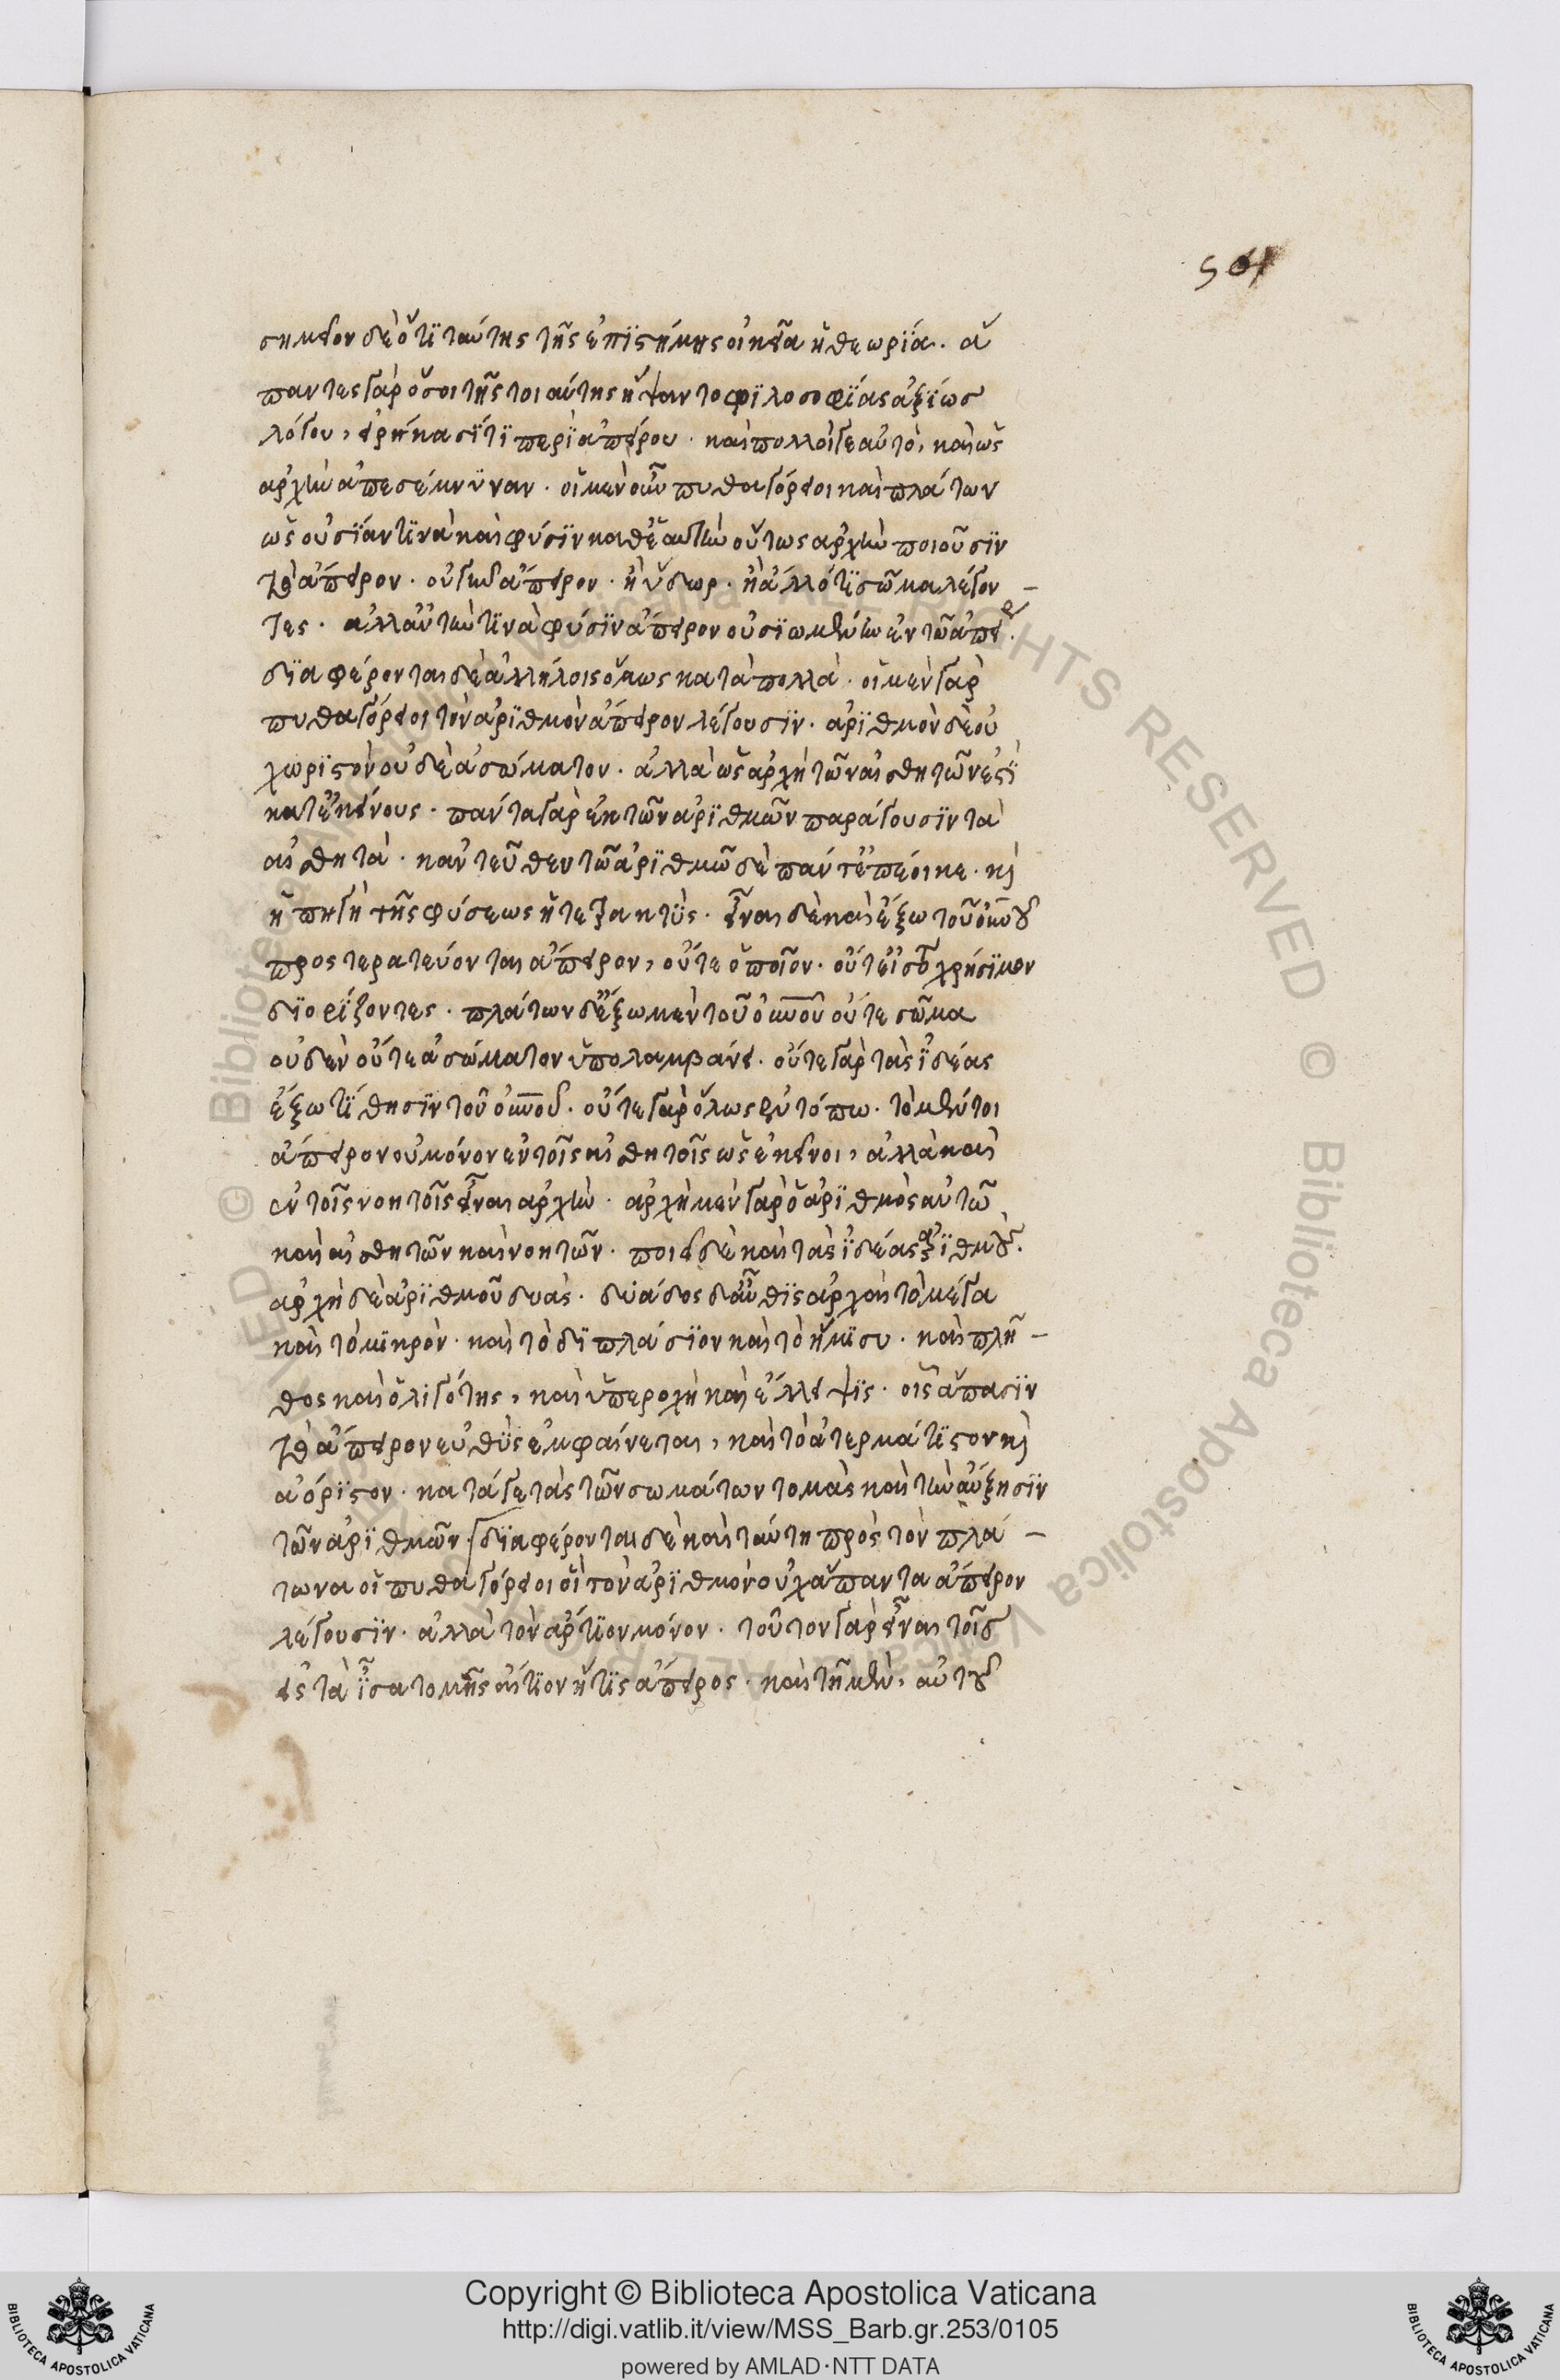 501
σημεῖον δὲ ὅτι ταύτης τῆς ἐπιστήμης οἰκεία ἡ θεωρία. ἅ
παντες γὰρ ὅσοι τῆς τοιαύτης ἥψαντο φιλοσοφίας ἀξίως
λόγου, εἰρήκασί τι περὶ ἀπείρου. καὶ πολλοί γε αὐτὸ, καὶ ὡς
ἀρχὴν ἀπεσέμνυναν. οἱ μὲν οὖν πυθαγόρειοι καὶ πλάτων
ὡς οὐσίαν τινὰ καὶ φύσιν καθ' ἑαυτὴν οὕτως ἀρχὴν ποιοῦσιν
τὸ ἄπειρον. οὐ γῆν ἄπειρον. ἢ ὕδωρ. ἢ ἄλλό τι σῶμα λέγον-
τες. ἀλλ' αὐτήν τινὰ φύσιν ἄπειρον οὐσιωμένην ἐν τῶ ἀπείρ.
διαφέρονται δὲ ἀλλήλοις ὅμως κατὰ πολλὰ. οἱ μὲν γὰρ
πυθαγόρειοι τὸν ἀριθμὸν ἄπειρον λέγουσιν. ἀριθμὸν δὲ οὐ
χωριστὸν οὐδὲ ἀσώματον. ἀλλὰ ὡς ἀρχὴ τῶν αἰσθητῶν ἐστὶ
κατ' ἐκείνους. πάντα γὰρ ἐκ τῶν ἀριθμῶν παράγουσιν τὰ
αἰσθητὰ. κἀντεῦθεν τῶ ἀριθμῶ δὲ πάντ' ἐπέοικε. καὶ
ἡ πηγὴ τῆς φύσεως ἡ τετρακτὺς. εἶναι δὲ καὶ ἔξω τοῦ οὐνοῦ
προστερατεύονται ἄπειρον, οὔτε ὁποῖον. οὔτ' εἰς ὅ τι χρήσιμον
διορίζοντες. πλάτων δ' ἔξω μὲν τοῦ οὐνοῦ οὔτε σῶμα
οὐδὲν οὔτε ἀσώματον ὑπολαμβάνει. οὔτε γὰρ τὰς ἰδέας
ἔξω τίθησιν τοῦ οὐνοῦ. οὔτε γὰρ ὅλως ἐν τόπω. τὸ μέντοι
ἄπειρον οὐ μόνον ἐν τοῖς αἰσθητοῖς ὡς ἐκεῖνοι, ἀλλὰ καὶ
ἐν τοῖς νοητοῖς εἶναι ἀρχὴν. ἀρχὴ μὲν γὰρ ὁ ἀριθμὸς αὐτῶ
καὶ αἰσθητῶν καὶ νοητῶν. ποιεῖ δὲ καὶ τὰς ἰδέας ἀριθμούς.
ἀρχὴ δὲ ἀριθμοῦ δυὰς. δυάδος δ' αὖθις ἀρχαὶ τὸ μέγα
καὶ τὸ μικρὸν. καὶ τὸ διπλάσιον καὶ τὸ ἥμισυ. καὶ πλῆ-
θος καὶ ὀλιγότης, καὶ ὑπεροχὴ καὶ ἔλλειψις. οἷς ἅπασιν
τὸ ἄπειρον εὐθὺς ἐμφαίνεται, καὶ τὸ ἀτερμάτιστον καὶ
ἀόριστον. κατά γε τὰς τῶν σωμάτων τομὰς καὶ τὴν αὔξησιν
τῶν ἀριθμῶν διαφέρονται δὲ καὶ ταύτη πρὸς τὸν πλά-
τωνα οἱ πυθαγόρειοι ὅτι τὸν ἀριθμὸν οὐχ ἅπαντα ἄπειρον
λέγουσιν. ἀλλὰ τὸν ἄρτιον μόνον. τοῦτον γὰρ εἶναι τοῖς
εἰς τὰ ἴσα τομῆς αἴτιον ἥτις ἄπειρος. καὶ τῆ μὲν, αὐτοῦ
Copyright © Biblioteca Apostolica Vaticana
http://digi.vatlib.it/view/MSS_Barb.gr.253/0105
powered by AMLAD·NTT DATA